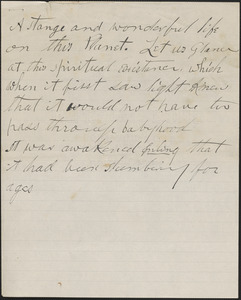 A stange and wonderful life
on this Planet. Let us glance
at the spiritual existence, which
when it first saw light knew
that it would not have to
pass through babyhood
It was awakened that
it had been slumbering for
ages